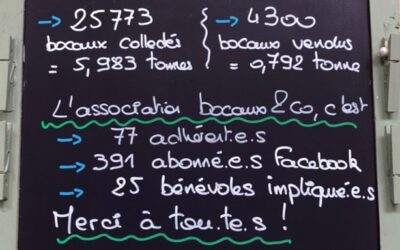 → 25 773
bocaux collectés
= 5,983 tonnes
→ 4300
bocaux vendus
= 0,792 tonne
L'association bocaux&co, c'est
→ 77 adhérent.e.s
→ 391 abonné.e.s Facebook
→ 25 bénévoles impliqué.e.s
Merci à tou.te.s !